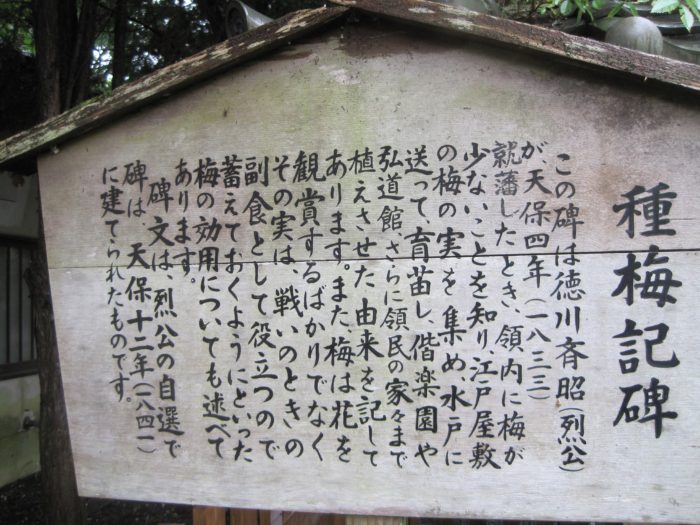 種梅記碑
この碑は徳川斉昭(烈公)
が、天保四年(一八三三)
就藩したとき、領内に梅が
少ないことを知り、江戸屋敷
の梅の実を集め水戸に
送って、育苗し、偕楽園や
弘道館、さらに領民の家々まで
植えさせた由来を記して
あります。また梅は花を
観賞するばかりでなく
その実は、戦いのときの
副食として役立つので
蓄えておくようにといった
梅の効用についても述べて
あります。
碑文は、烈公の自選で
碑は、天保十二年(一八四一)
に建てられたものです。